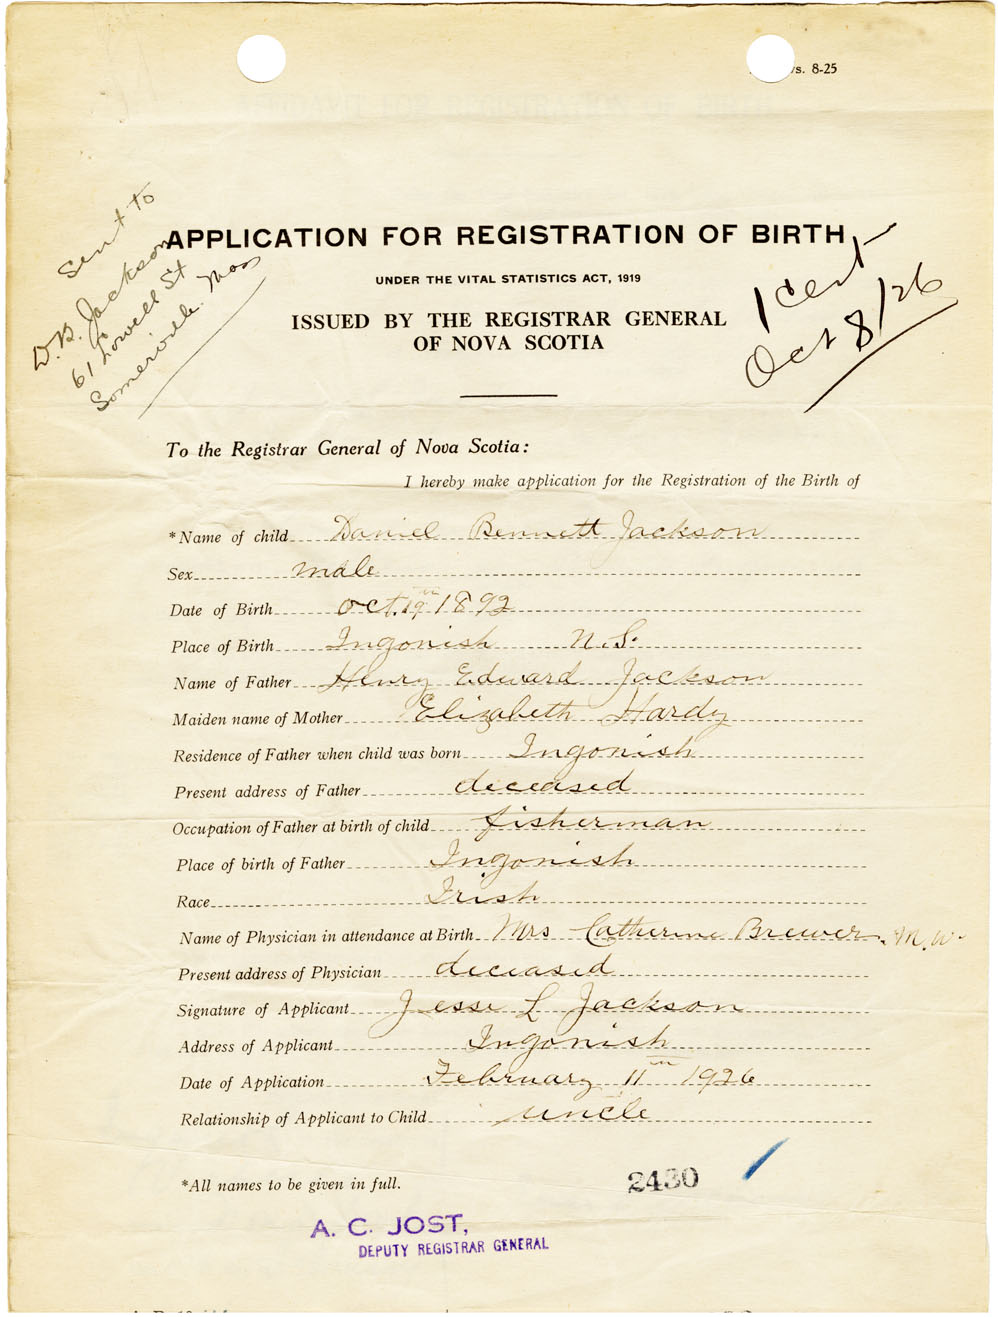 /s. 8-25
Sent to
D.B. Jackson
61 Lowell St
Somerville. Mass
APPLICATION FOR REGISTRATION OF BIRTH
UNDER THE VITAL STATISTICS ACT, 1919
ISSUED BY THE REGISTRAR GENERAL
OF NOVA SCOTIA
1 cert
Oct 8/26
To the Registrar General of Nova Scotia:
I hereby make application for the Registration of the Birth of
*Name of child Daniel Bennett Jackson
Sex male
Date of Birth Oct. 19th 1892
Place of Birth Ingonish N.S.
Name of Father Henry Edward Jackson
Maiden name of Mother Elizabeth Hardy
Residence of Father when child was born Ingonish
Present address of Father deceased
Occupation of Father at birth of child fisherman
Place of birth of Father Ingonish
Race Irish
Name of Physician in attendance at Birth Mrs Catherine Brewer. M.W.
Present address of Physician deceased
Signature of Applicant Jesse L Jackson
Address of Applicant Ingonish
Date of Application February 11th 1926
Relationship of Applicant to Child uncle
*All names to be given in full.
2430
A. C. JOST,
DEPUTY REGISTRAR GENERAL